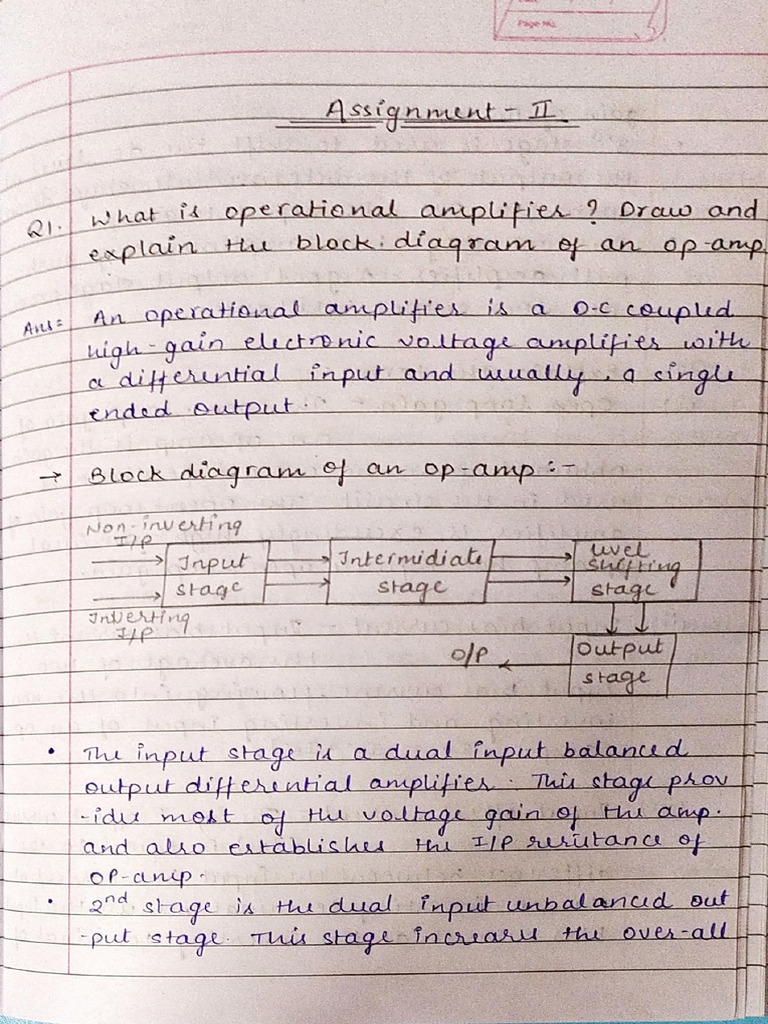 Page No.
Assignment - II
Q1. What is operational amplifier? Draw and
explain the block diagram of an op-amp
Ans= An operational amplifier is a D.C coupled
high-gain electronic voltage amplifier with
a differential input and usually, a single
ended output.
→ Block diagram of an op-amp :-
Non-inverting
I/P
Input
stage
Inverting
I/P
Intermidiate
stage
level
shifting
stage
Output
stage
O/P
• The input stage is a dual input balanced
output differential amplifier. This stage prov
-ides most of the voltage gain of the amp.
and also establishes the I/P resistance of
OP-amp.
• 2nd stage is the dual input unbalanced out
-put stage. This stage increases the over-all